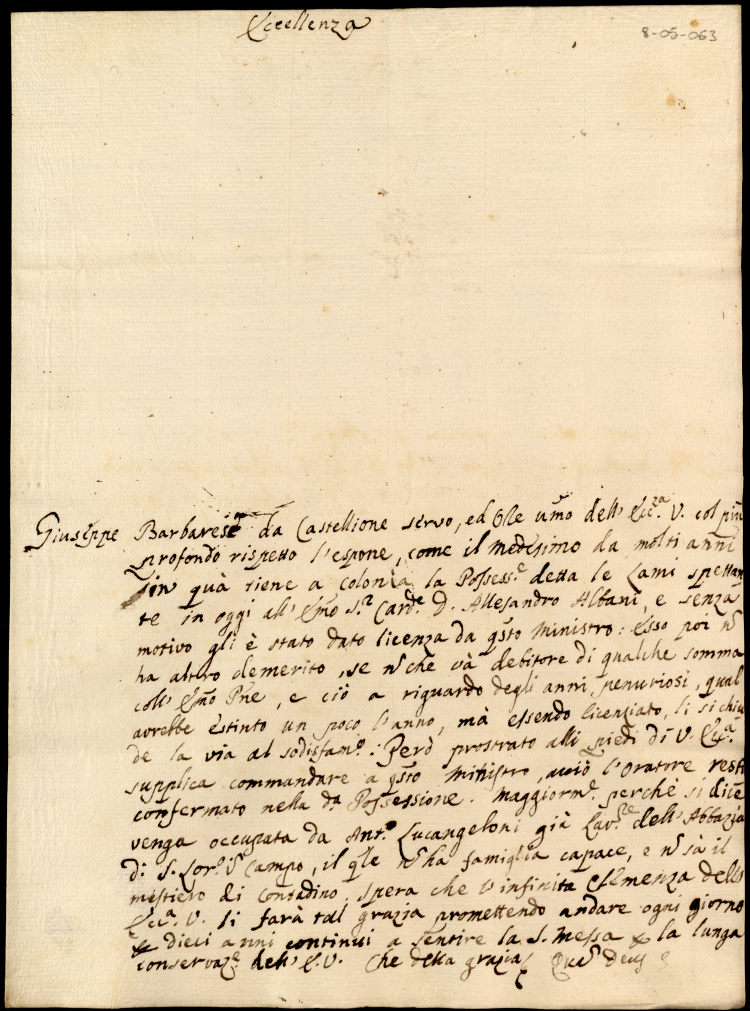 Eccellenza
8-05-063
Giuseppe Barbarese da Castellione servo, ed Ole umo dell' Ecc.za V. col più
profondo rispetto l'espone, come il medesimo da molti anni
sin quà tiene a colonia la Possess.e detta le Lami spettan
te in oggi all' Emo S.r Card.e D. Allesandro Albani, e senza
motivo gli è stato dato licenza da qsto Ministro: Esso poi n
ha altro demerito, se n che và debitore di qualche somma
coll' Emo Pne, e ciò a riguardo degli anni penuriosi, qual
avrebbe estinto un poco l'anno, mà essendo licenziato, li si chiu
de la via al sodisfam.o: Però prostrato alli piedi di V. Ecc.a
supplica commandare a qsto Ministro, acciò l'Oratore resti
confermato nella d.a Possessione. Maggiorm.e perchè si dice
venga occupata da Ant.o Lucangeloni già Lav.re dell' Abbazia
di S. Lor.o in Campo, il qle n ha famiglia capace, e n sà il
mestiero di contadino, spera che l'infinita Clemenza dell'
Ecc.a V. li farà tal grazia promettendo andare ogni giorno
p dieci anni continui a sentire la S. Messa p la lunga
conservaz.e dell' E.V. Che della grazia/ Quam Deus